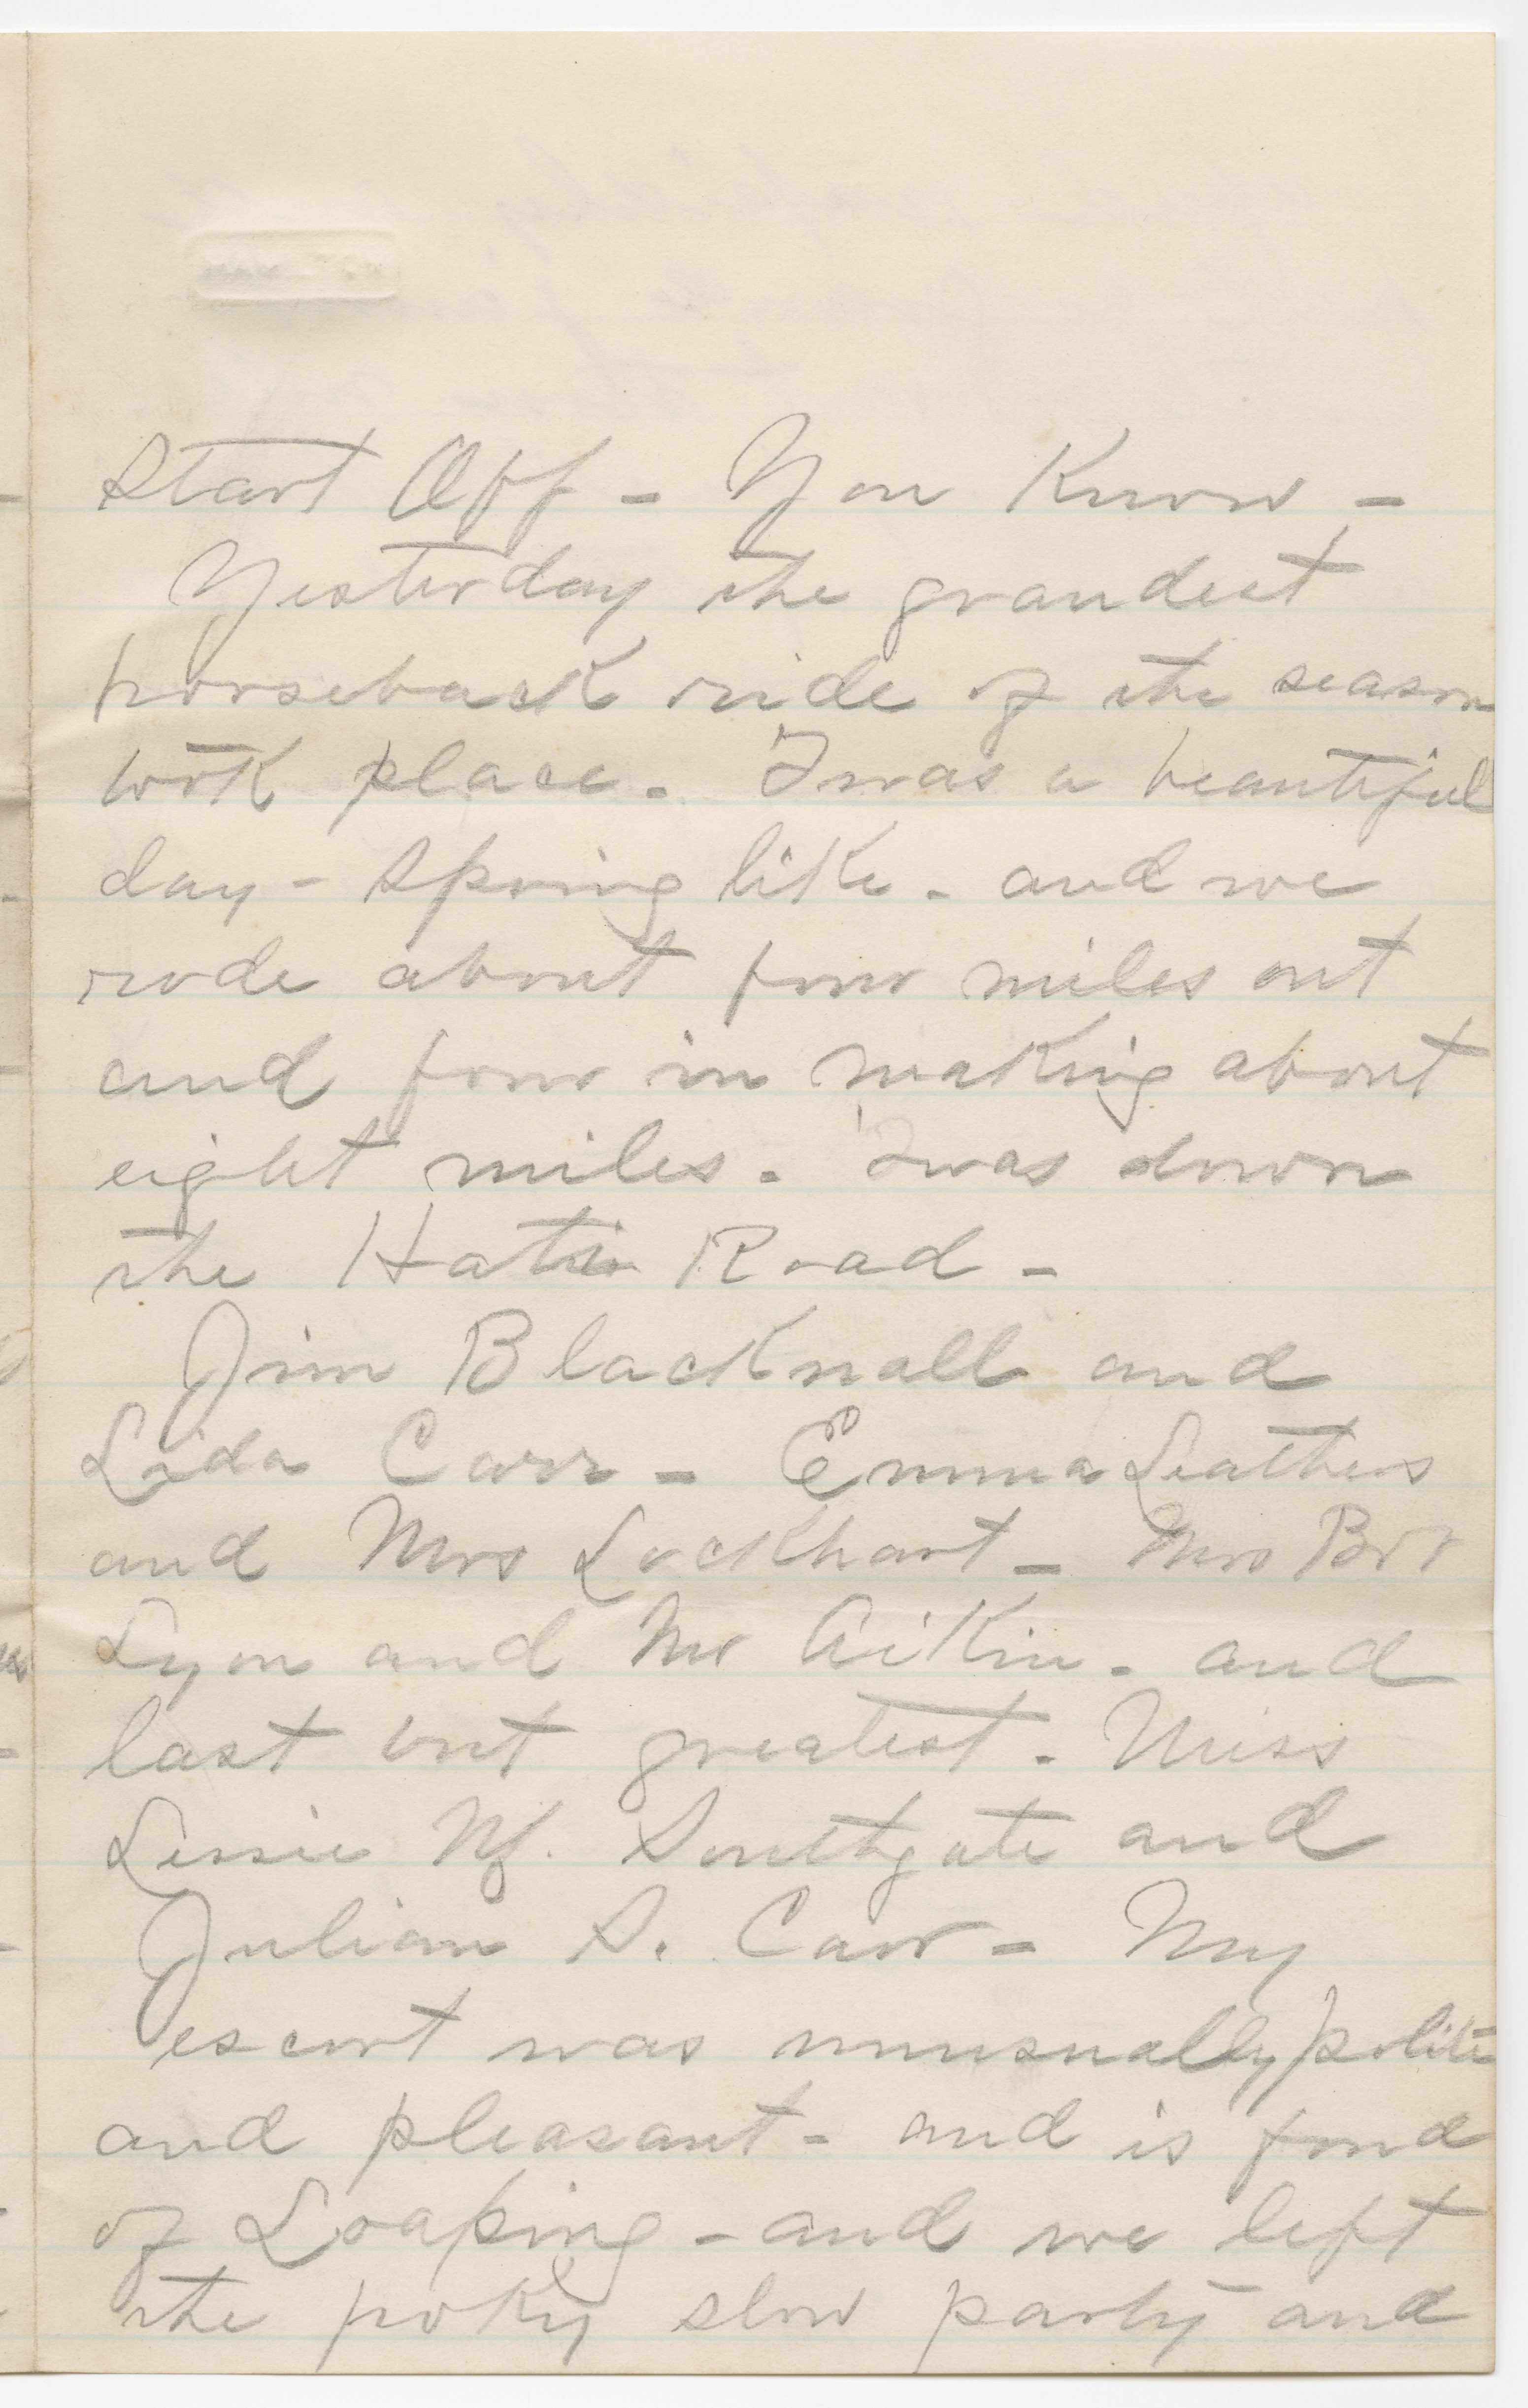 Start Off - You Know -
Yesterday the grandest
horseback ride of the season
took place. Twas a beautiful
day - Spring like - and we
rode about four miles out
and four in making about
eight miles. 'Twas down
the Road -
Jim Blacknall and
Lida Carr - Emma Leathers
and Mrs Lockhart - Mrs
Lyon and Mr Aikin - and
last but greatest - Miss
Lessie M. Southgate and
Julian S. Carr - My
escort was unusually polite
and pleasant - and is fond
of Loaping - and we left
the poky slow party and